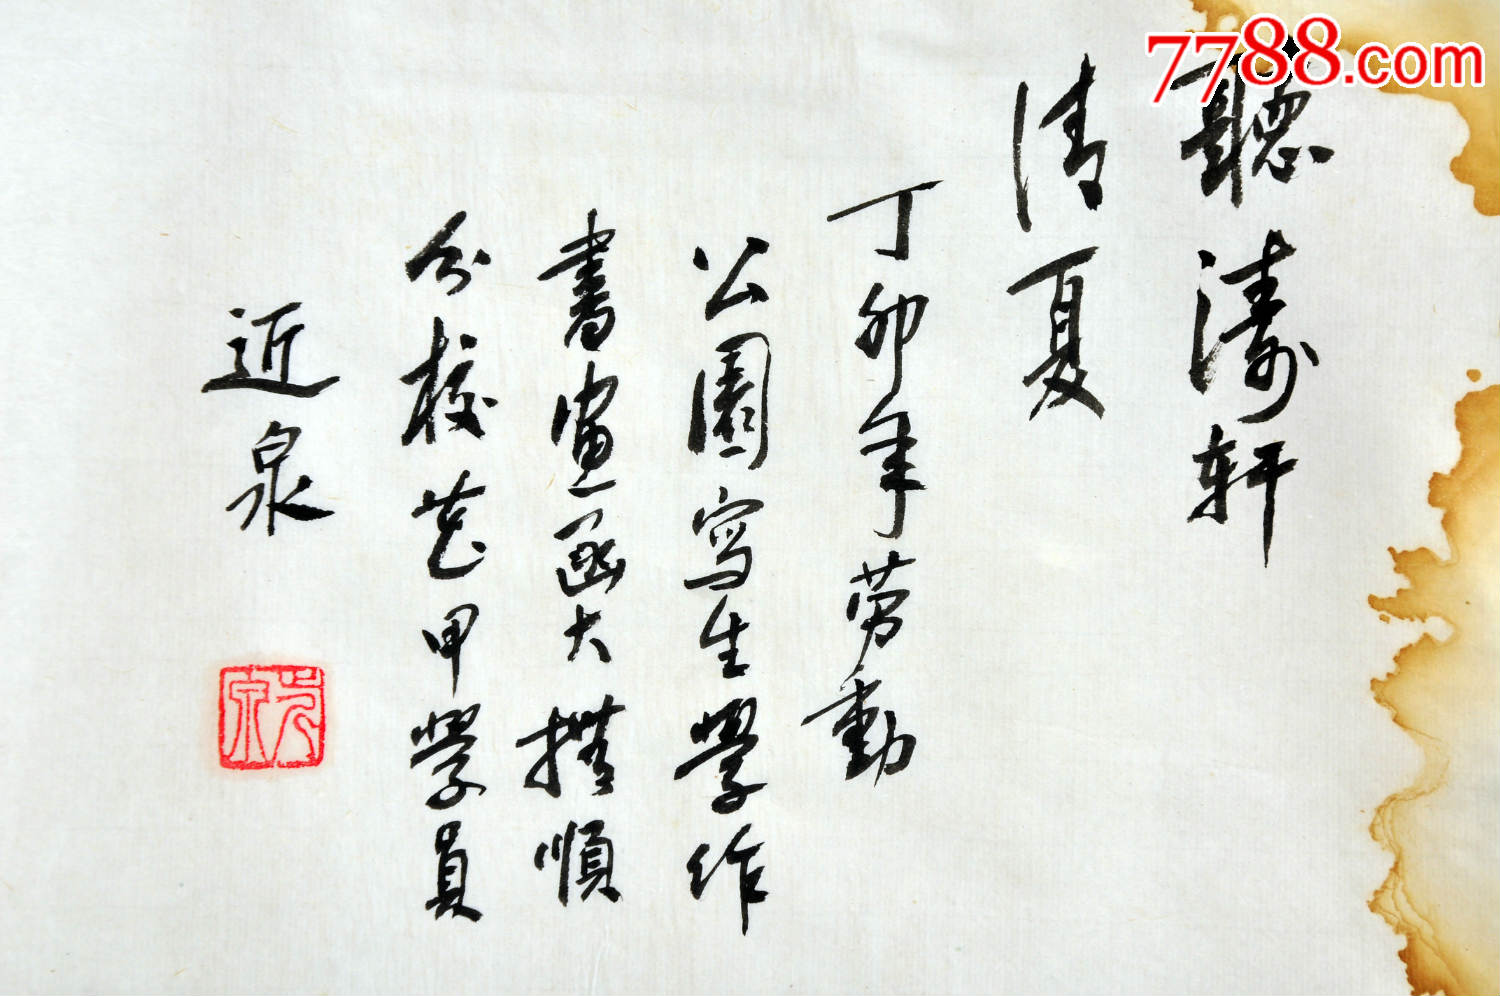 7788.com
聽濤軒
清夏
丁卯年劳動
公園写生學作
書画函大撫順
分校花甲學員
近泉